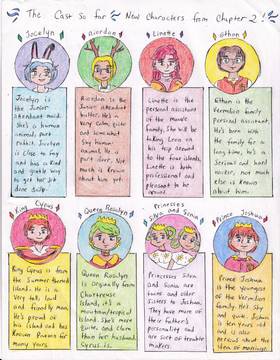 The Cast So far
New Characters from Chapter 2!
Jocelyn
Riordan
Linette
Ethon
Jocelyn is
the Junior
attendant maid.
She's a
human animal,
part rabbit. Jocelyn
is close to my
and has a kind
and quirky way
to get her job
done still.
Riordan is the
Junior Attendant
butler. He's a
very calm, quiet
and somewhat
shy human
animal. He is
part deer. Not
much is known
about him yet.
Linette is the
personal assistant
of the
family. She will be
taking Leon on
his trip around
to the four islands.
Linette is both
professional and
pleasant to be
around.
Ethon is the
Vermilion family
personal assistant.
He's been
with the family
for a long time.
He's a
serious and hard
worker, not much
else is known
about him.
King Cyrus
Queen Rosslyn
Princesses
Silva and Sonia
Prince Joshua
King Cyrus is from
the Summer themed
island. He is a
very tall, loud
and friendly man.
He's proud of
his island and has
known
for many
years.
Queen Rosslyn
is originally from
Chartreuse
Island, it's a
mountain/tropical
island. She's more
quiet and calm
than her
husband
Cyrus is.
Princesses Silva
and Sonia are
twins and older
sisters to Joshua.
They have more
of their father's
personality and
are sort of trouble
makers.
Prince Joshua
is the
youngest of the
Vermilion family.
He's shy and
quiet. Joshua
is ten years old
and is
nervous about this
meeting of monarchs.